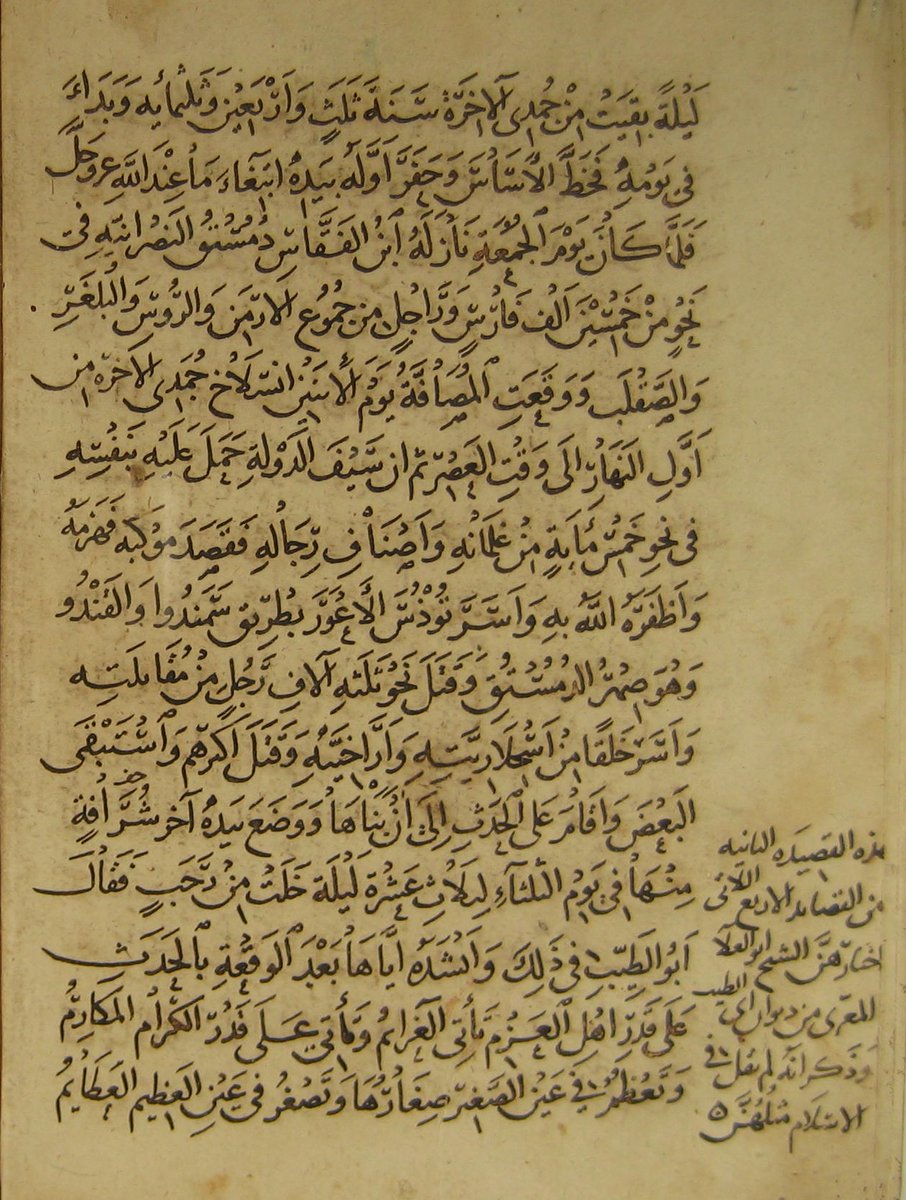 لَيْلَةً بَقِيَتْ مِنْ جُمَدَى الآخِرَةِ سَنَةَ ثَلَثٍ وَأَرْبَعِينَ وَثَلثمائِه وَبَدَاءَ
فى يَوْمِهِ فَخَطَّ الْأَسَاسَ وَحَفَرَ أَوَّلَهُ بِيَدِهِ ابْتِغَاءَ مَا عِنْدَ اللَّهِ عز وجلَّ
فَلَمَّا كَانَ يَوْمَ الجُمُعَةِ نَازَلَهُ ابْنُ الفَقَّاسِ دُمُسْتُقُ النَصْرَانِيّهِ فى
نَحْوٍ مِنْ خَمْسِيْنَ اَلْف فَارِسٍ وَرَاجِلٍ مِن جُمُوعِ الارْمَنِ وَالرُّوسِ وَالْبُلْغَرِ
وَالصَّقْلَبِ وَوَقَعَتِ المُصَافَّةُ يَوْمَ الأثْنَيْنِ انْسِلَاخَ جُمَدَى الآخِرَهِ مِن
اَوَّلِ النَهَارِ اِلَى وَقْتِ العَصْرِ ثم ان سَيْفَ الدَوْلَةِ حَمَلَ عَلَيْهِ بِنَفْسِهِ
فى نحوِ خَمْسِ مَأيَةٍ مِنْ غِلْمَانِهِ وَاَصْنَافِ رِجَالِهِ فَقَصَدَ مَوْكِبَه فَهَزَمَهُ
وَاَظْفَرَهُ اللَّهُ بِهِ وَاَسَرَ تُوذُسَ الأَعْوَرَ بِطْرِيقَ سَمَنْدُوا وَالقُنْدُو
وَهُوَ صِهْرُ الدُمُسْتُقِ وَقَتَلَ نَحْوَ ثَلَثَهِ آلافِ رَجُلٍ مِنْ مُقَاتِلَتِه
وَاَسَرَ خَلْقًا مِنْ اَسْحلَارِيَّتِهِ وَاَرَاخِيَّهِ وَقَتَلَ اَكثَرَهُم وَاسْتَبْقَى
البَعْضَ وَاَقَامَ عَلَى الحَدَثِ اِلَى اَنْ بَنَاهَا وَوَضَعَ بِيَدِهِ آخِرَ شُرَّافَةٍ
مِنْهَا فى يَوْمِ الثُلَثآءِ لِثَلَاثِ عَشْرَةَ لَيْلَة خَلَتْ مِنْ رَجَبٍ فَقَالَ
اَبُو الطَيّبِ فى ذَلِكَ وَاَنْشَدَهُ اِيَّاهَا بَعْدَ الْوَقْعَةِ بِالحَدَثِ
عَلَى قَدْرِ اهْلِ العَزْمِ تَأتِى العَزَائِمُ وَتَأتِى عَلَى قَدْرِ الكِرَامِ المَكَارِمُ
وَتَعْظُمُ فى عَيْنِ الصَّغِيْرِ صِغَارُهَا وَتَصْغُرُ فى عَيْنِ العَظِيمِ العَظَايِمُ
هذه القصيده الثانيه
من القصائد الاربع اللاتى
اختارهنَّ الشيخ ابو العلا
المعَرى من ديوان ابى الطيب
وَذَكر انَه لم يقل فى
الاسلام مثلهُنَّ